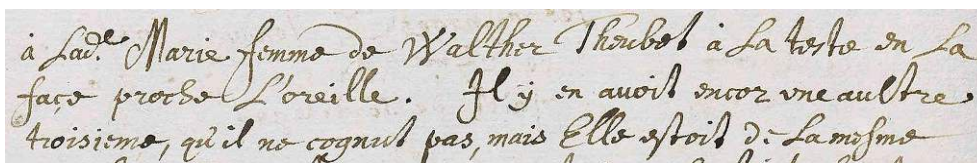 à Lad.e Marie femme de Walther Theubet à La teste en La
façe proche L'oreille. Il y en avoit encor une aultre
troisieme, qu'il ne cognut pas, mais Elle estoit de La mesme